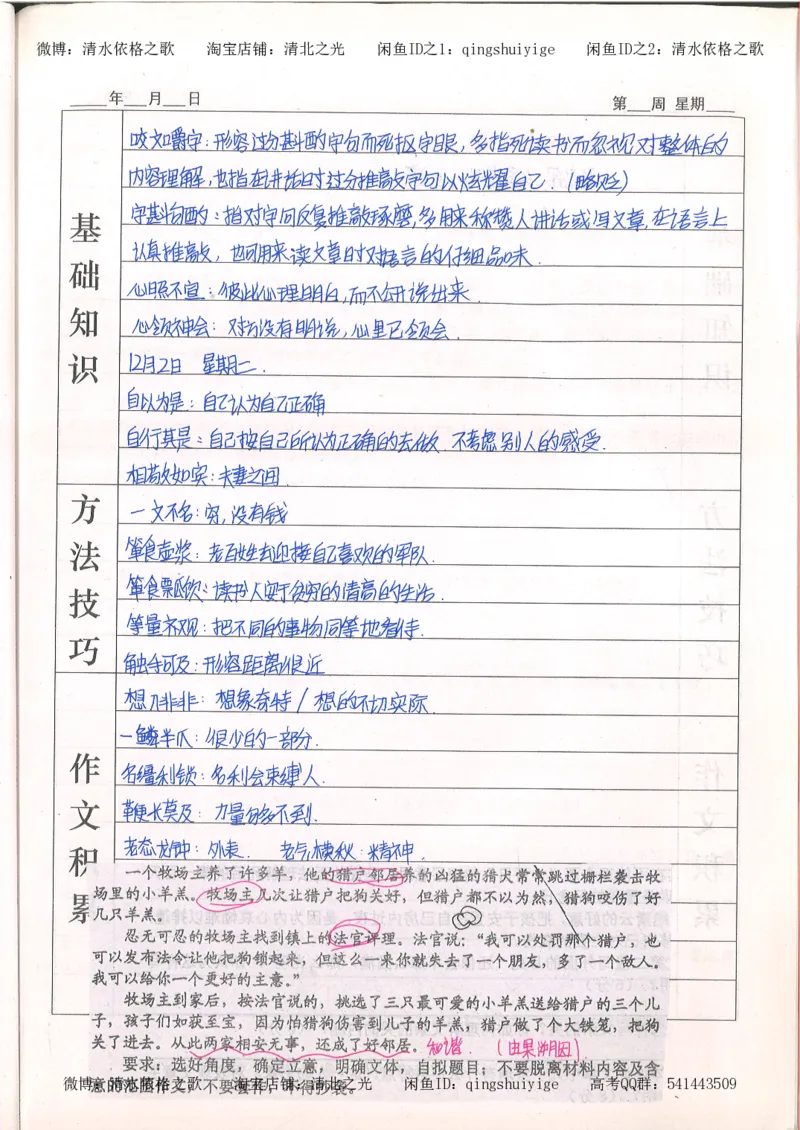 微博：清水依格之歌 淘宝店铺：清北之光 闲鱼ID之1：qingshuiyige 闲鱼ID之2：清水依格之歌
___年___月___日 第___周 星期___
基础知识
咬文嚼字：形容过分斟酌字句而死抠字眼，多指死读书而忽视对整体的
内容理解，也指在讲话时过分推敲字句以炫耀自己．(略贬)
字斟句酌：指对字词反复推敲琢磨，多用来称赞人讲话或写文章，在语言上
认真推敲，也可用来读文章时对语言的仔细品味．
心照不宣：彼此心理明白，而不公开说出来．
心领神会：对方没有明说，心里已领会．
12月2日 星期二．
自以为是：自己认为自己正确
自行其是：自己按自己所认为正确的去做．不考虑别人的感受．
相敬如宾：夫妻之间．
方法技巧
一文不名：穷，没有钱
箪食壶浆：老百姓去迎接自己喜欢的军队．
箪食瓢饮：读书人安于贫穷的清高的生活．
等量齐观：把不同的事物同等地看待．
触手可及：形容距离很近
作文积累
想入非非：想象奇特/想的不切实际．
一鳞半爪：很少的一部分．
名缰利锁：名利会束缚人．
鞭长莫及：力量够不到．
老态龙钟：外表． 老气横秋：精神．
一个牧场主养了许多羊，他的猎户邻居养的凶猛的猎犬常常跳过栅栏袭击牧
场里的小羊羔。牧场主几次让猎户把狗关好，但猎户都不以为然，猎狗咬伤了好
几只羊羔。
忍无可忍的牧场主找到镇上的法官评理。法官说：“我可以处罚那个猎户，也
可以发布法令让他把狗锁起来，但这么一来你就失去了一个朋友，多了一个敌人。
我可以给你一个更好的主意。”
牧场主到家后，按法官说的，挑选了三只最可爱的小羊羔送给猎户的三个儿
子，孩子们如获至宝，因为怕猎狗伤害到儿子的羊羔，猎户做了个大铁笼，把狗
关了进去。从此两家相安无事，还成了好邻居。 和谐． (由果溯因)
要求：选好角度，确定立意，明确文体，自拟题目；不要脱离材料内容及含
意的范围作文，不要套作，不得抄袭。
微博：清水依格之歌 淘宝店铺：清北之光 闲鱼ID：qingshuiyige 高考QQ群：541443509